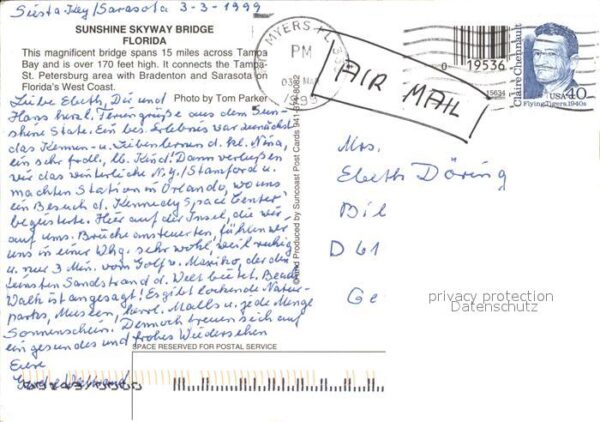 Siesta Key/Sarasota 3-3-1999
SUNSHINE SKYWAY BRIDGE
FLORIDA
This magnificent bridge spans 15 miles across Tampa
Bay and is over 170 feet high. It connects the Tampa-
St. Petersburg area with Bradenton and Sarasota on
Florida's West Coast.
Photo by Tom Parker
Liebe Ebeth, Du und
Hans herzl. Feriengrüsse aus dem Sun-
shine State. Ein bes. Erlebnis war zunächst
das Kennen- u. Liebenlernen d. kl. Nina,
ein sehr frdl., lb. Kind! Dann verliessen
wir das winterliche N.Y./Stamford u.
machten Station in Orlando, wo uns
ein Besuch d. Kennedy Space Center
begeisterte. Hier auf der Insel, die wir
auf ums. Brücke ansteuerten, fühlen wir
uns in einer Whg. sehr wohl, weil ruhig
u. nur 3 Min. vom Golf v. Mexiko, der den
feinsten Sandstrand d. Welt bietet. Beach
Walk ist angesagt! Es gibt lockende Natur-
parks, Museen, herrl. Malls u. jede Menge
Sonnenschein. Dennoch freuen sich auf
ein gesundes und frohes Wiedersehen
Eure
SPACE RESERVED FOR POSTAL SERVICE
and Produced by Suncoast Post Cards
MYERS FL
PM
1999
AIR MAIL
0
19536
15634
Claire Chennault
USA
40
Flying Tigers, 1940s
Mrs.
Ebeth Döring
Bil
D 61
Ge
privacy protection
Datenschutz